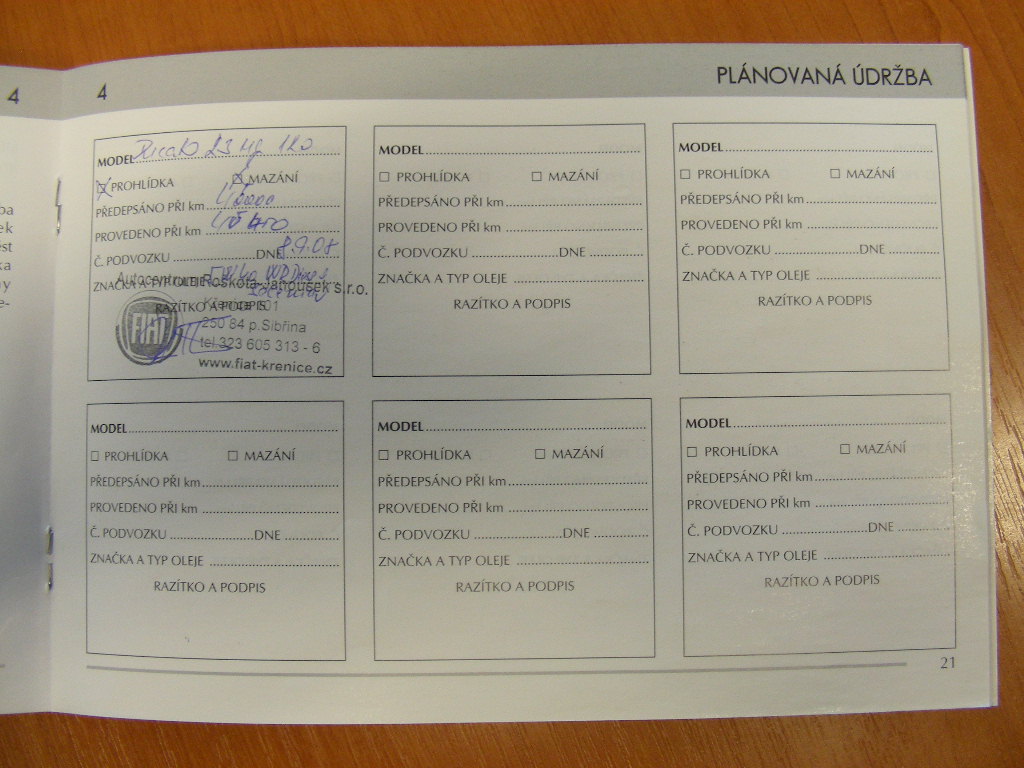 4
4
PLÁNOVANÁ ÚDRŽBA
ba
ek
ést
ka
ny
e-
MODEL 23 120
PROHLÍDKA MAZÁNÍ
PŘEDEPSÁNO PŘI km
PROVEDENO PŘI km
Č. PODVOZKU DNE 8.9.08
ZNAČKA A TYP OLEJE
RAZÍTKO A PODPIS
Autocentrum Roškota-Janoušek s.r.o.
Křenice 101
250 84 p.Sibřina
tel.323 605 313 - 6
www.fiat-krenice.cz
FIAT
MODEL
PROHLÍDKA MAZÁNÍ
PŘEDEPSÁNO PŘI km
PROVEDENO PŘI km
Č. PODVOZKU DNE
ZNAČKA A TYP OLEJE
RAZÍTKO A PODPIS
MODEL
PROHLÍDKA MAZÁNÍ
PŘEDEPSÁNO PŘI km
PROVEDENO PŘI km
Č. PODVOZKU DNE
ZNAČKA A TYP OLEJE
RAZÍTKO A PODPIS
MODEL
PROHLÍDKA MAZÁNÍ
PŘEDEPSÁNO PŘI km
PROVEDENO PŘI km
Č. PODVOZKU DNE
ZNAČKA A TYP OLEJE
RAZÍTKO A PODPIS
MODEL
PROHLÍDKA MAZÁNÍ
PŘEDEPSÁNO PŘI km
PROVEDENO PŘI km
Č. PODVOZKU DNE
ZNAČKA A TYP OLEJE
RAZÍTKO A PODPIS
MODEL
PROHLÍDKA MAZÁNÍ
PŘEDEPSÁNO PŘI km
PROVEDENO PŘI km
Č. PODVOZKU DNE
ZNAČKA A TYP OLEJE
RAZÍTKO A PODPIS
21